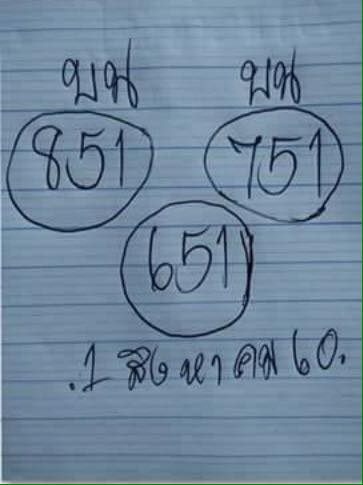 บน บน
851 751
651
.1 สิงหาคม 60.